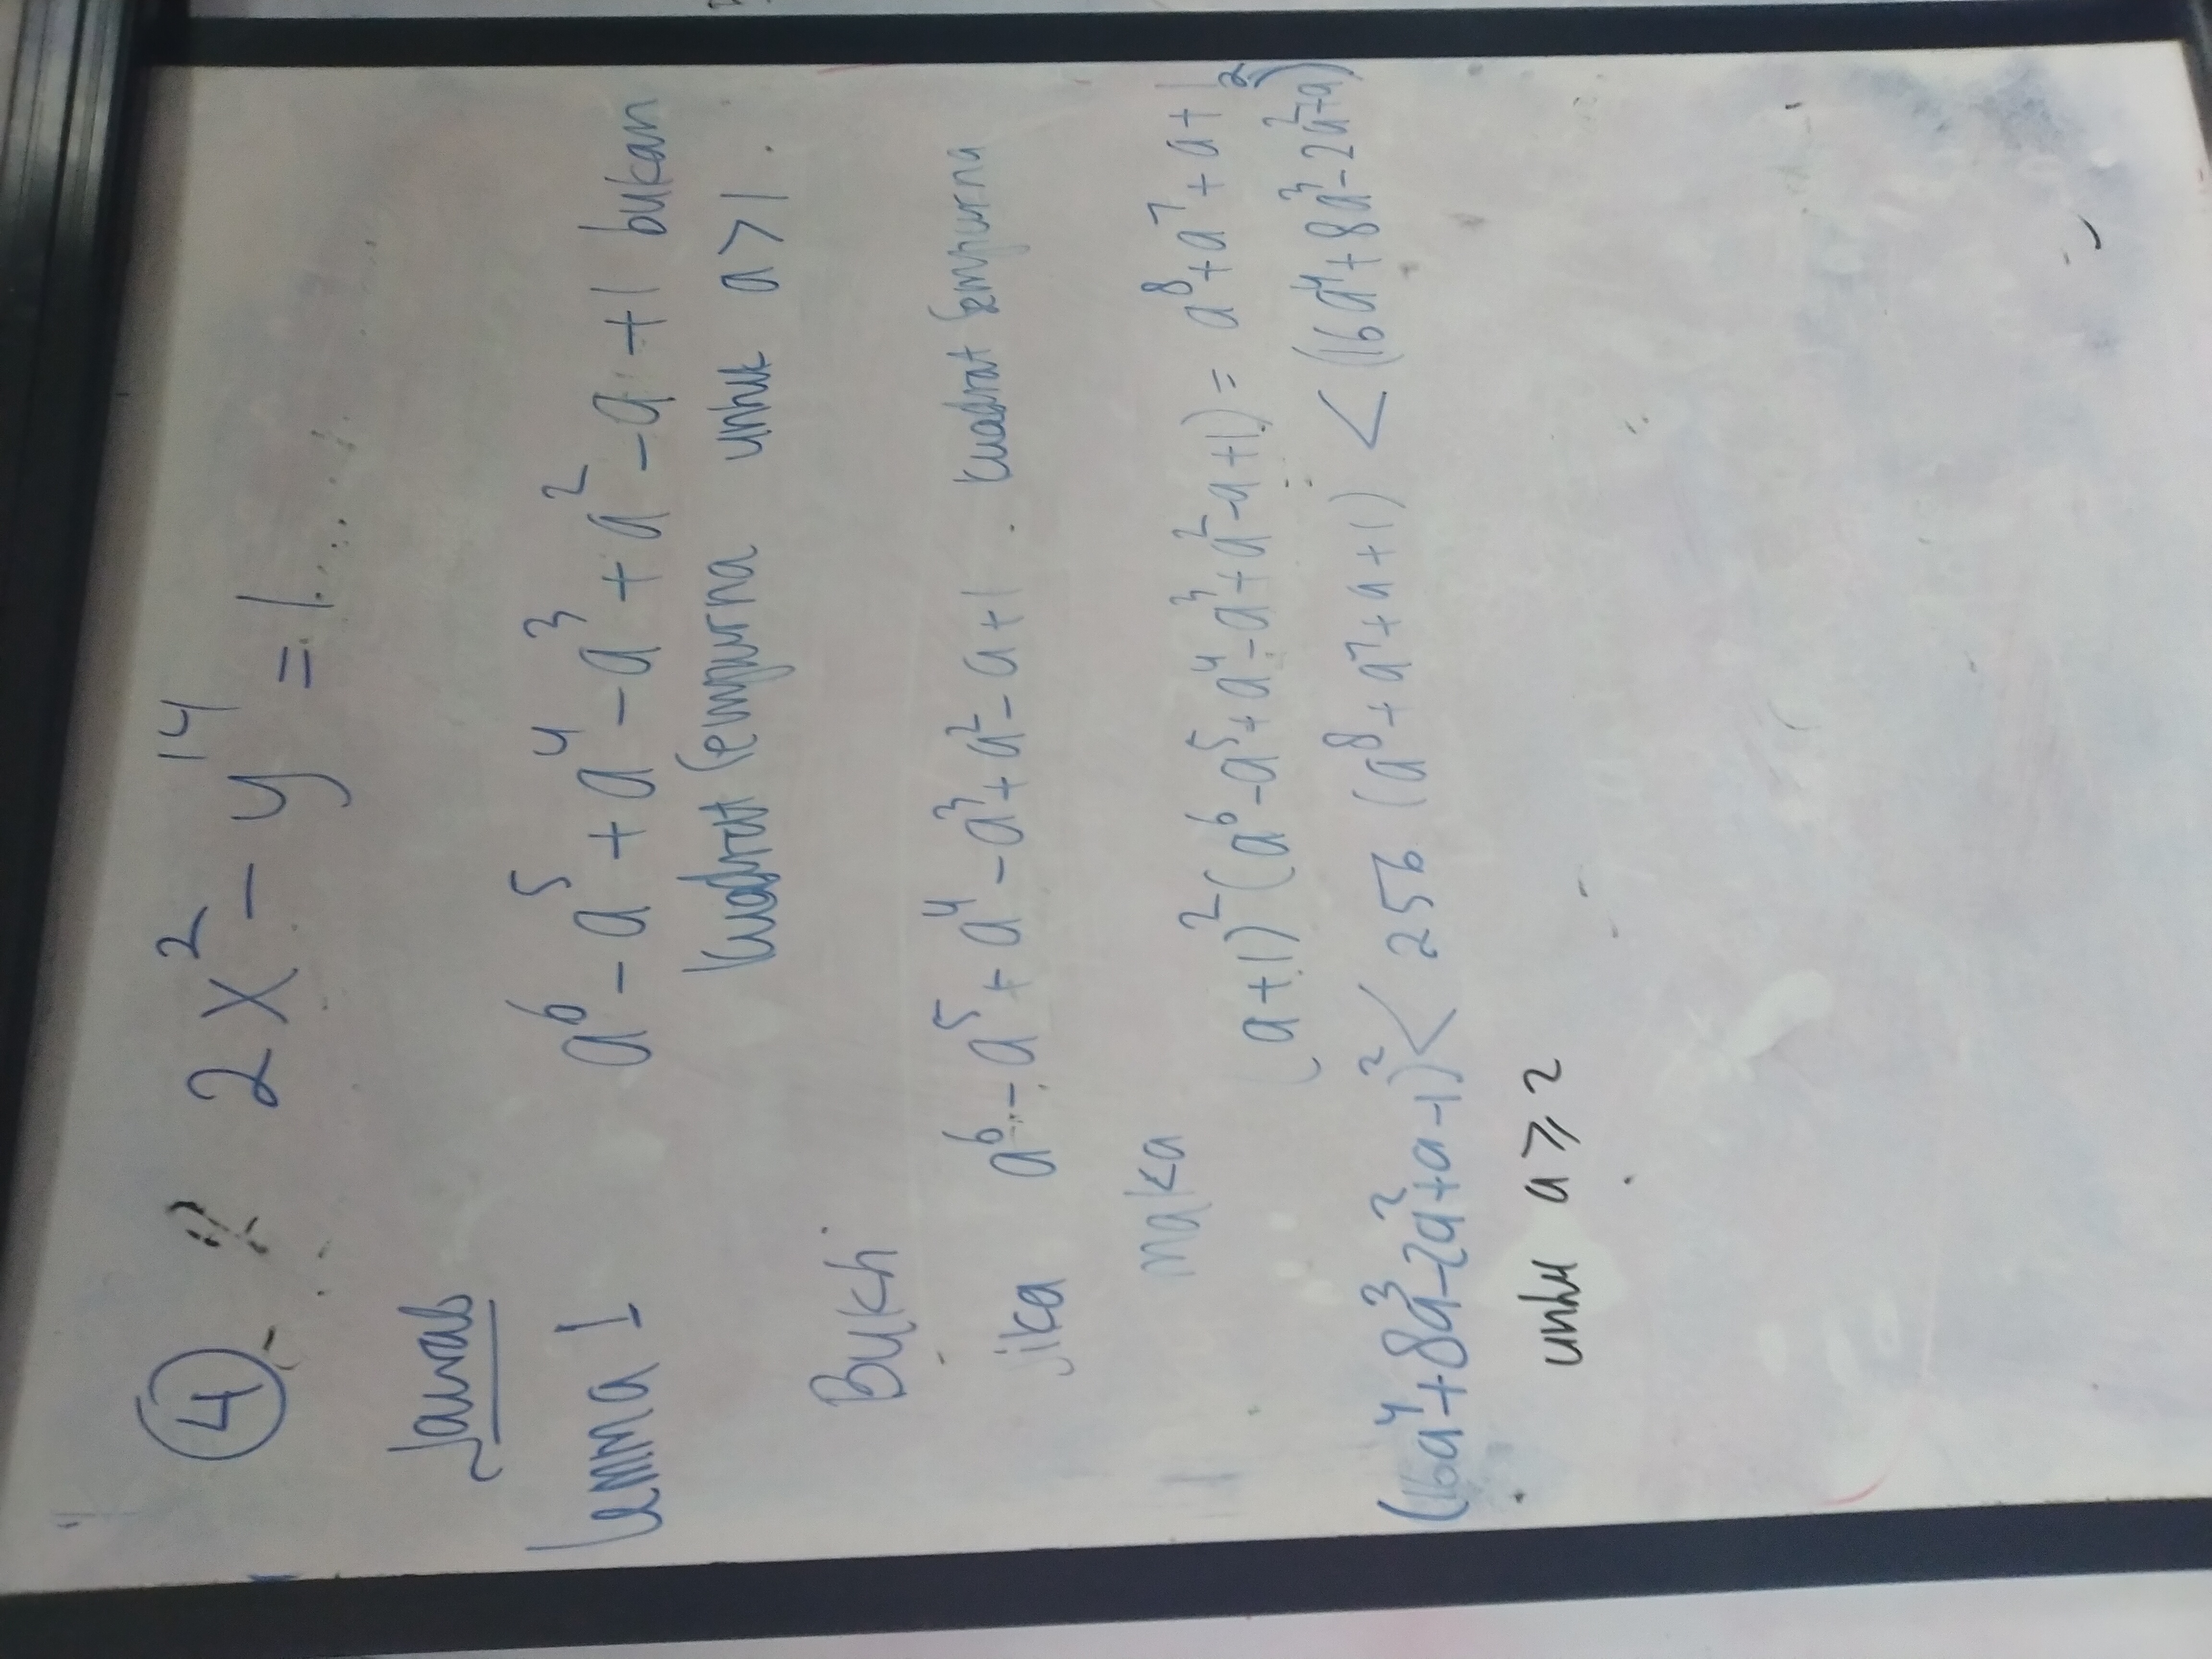 ④ 2x² - y¹⁴ = 1
Jawab
Lemma 1 a⁶ - a⁵ + a⁴ - a³ + a² - a + 1 bukan
kuadrat sempurna untuk a > 1.
Bukti
Jika a⁶ - a⁵ + a⁴ - a³ + a² - a + 1 . kuadrat sempurna
maka
(a+1)² (a⁶ - a⁵ + a⁴ - a³ + a² - a + 1) = a⁸ + a⁷ + a + 1
(16a⁴ + 8a³ - 2a² + a - 1)² < 256 (a⁸ + a⁷ + a + 1) < (16a⁴ + 8a³ - 2a² + a)²
untuk a ⩾ 2